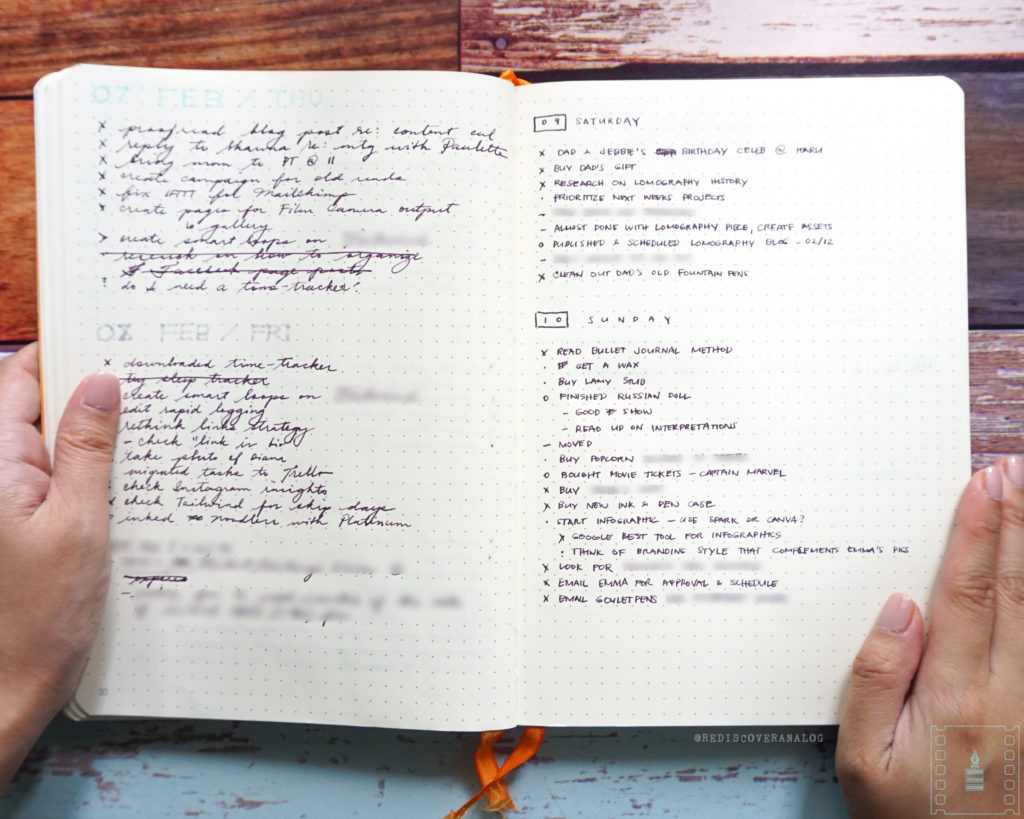 07 FEB / THU
x proofread blog post re: content cal
x reply to Shauna re: mtg with Paulette
x bring mom to PT @ 11
x create campaign for old reads
x fix IFTTT for Mailchimp
x create pages for Film Camera output
↳ gallery
> create smart loops on
research on how to organize
Facebook page posts
? do I need a time-tracker?
08 FEB / FRI
x downloaded time-tracker
try sleep tracker
create smart loops on
edit rapid logging
rethink links strategy
- check "link in bio
take photo of Diana
migrated tasks to Trello
check Instagram insights
check Tailwind for skip days
inked noodlers with Platinum
expires
-
30
09 SATURDAY
x DAD & JEBBIE'S BIRTHDAY CELEB @ HARU
x BUY DAD'S GIFT
x RESEARCH ON LOMOGRAPHY HISTORY
· PRIORITIZE NEXT WEEKS PROJECTS
-
- ALMOST DONE WITH LOMOGRAPHY PIECE, CREATE ASSETS
o PUBLISHED & SCHEDULED LOMOGRAPHY BLOG - 02/12
-
x CLEAN OUT DAD'S OLD FOUNTAIN PENS
10 SUNDAY
x READ BULLET JOURNAL METHOD
· GET A WAX
· BUY LAMY STUB
o FINISHED RUSSIAN DOLL
- GOOD SHOW
- READ UP ON INTERPRETATIONS
- MOVED
· BUY POPCORN
o BOUGHT MOVIE TICKETS - CAPTAIN MARVEL
x BUY
x BUY NEW INK & PEN CASE
· START INFOGRAPHIC - USE SPARK OR CANVA?
x GOOGLE BEST TOOL FOR INFOGRAPHICS
· THINK OF BRANDING STYLE THAT COMPLEMENTS EMMA'S PICS
x LOOK FOR
x EMAIL EMMA FOR APPROVAL & SCHEDULE
x EMAIL GOULETPENS
@REDISCOVERANALOG